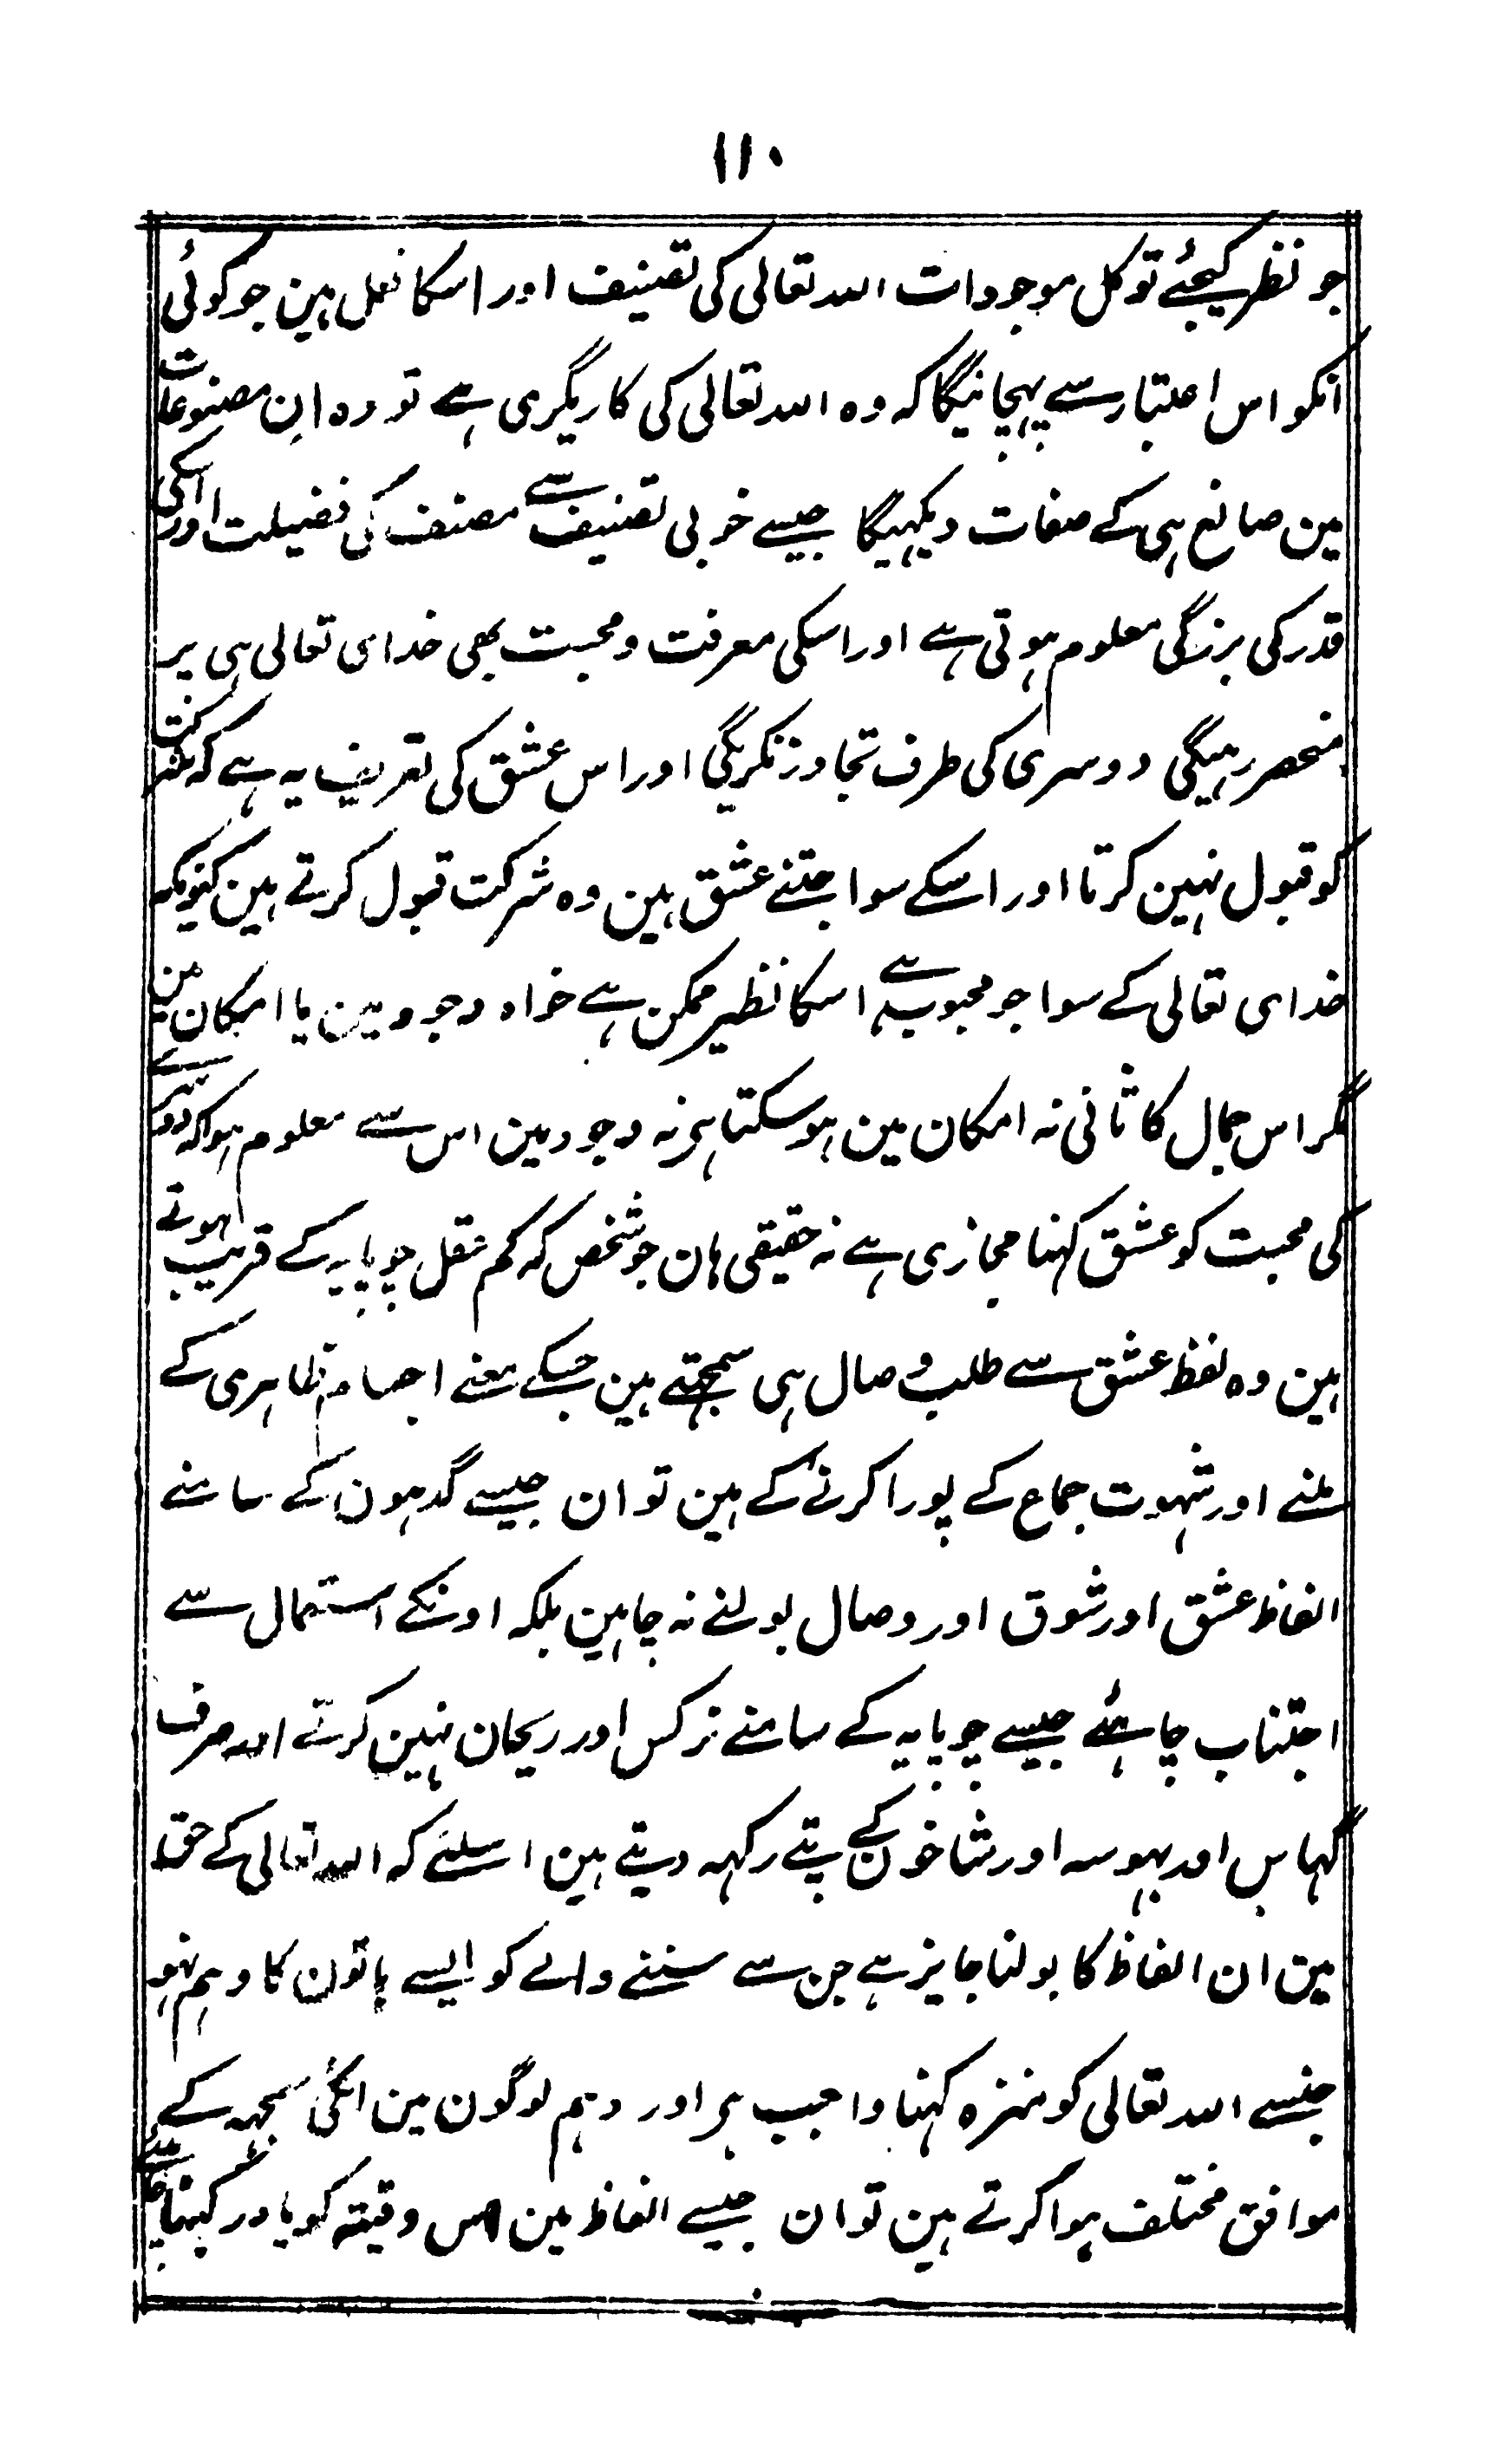 ۱۱۰
جو نظر کیجئے تو کل موجودات اللہ تعالی کی تصنیف اور اسکا فعل ہین جو کوئی
انکو اس اعتبار سے پہچانیگا کہ وہ اللہ تعالی کی کاریگری ہے تو وہ اِن مصنوعات
مین صانع ہی کے صفات دیکہیگا جیسے خوبی تصنیف سے مصنف کی فضیلت اور اسکی
قدر کی بزرگی معلوم ہوتی ہے اور اسکی معرفت و محبت بھی خدای تعالی ہی پر
منحصر رہیگی دوسری کی طرف تجاوز نکریگی اور اس عشق کی تعریف یہ ہے کہ شرکت
کو قبول نہین کرتا اور اسکے سوا جتنے عشق ہین وہ شرکت قبول کرتے ہین کیونکہ
خدای تعالی کے سوا جو محبوب ہے اسکا نظیر ممکن ہے خواہ وجود مین یا امکان مین
مگر اس جمال کا ثانی نہ امکان مین ہوسکتا ہی نہ وجود مین اس سے معلوم ہوا کہ دوسرے
کی محبت کو عشق کہنا مجازی ہے نہ حقیقی ہان جو شخص کہ کم عقل چوپایہ کے قریب ہوتے
ہین وہ لفظ عشق سے طلب وصال ہی سمجہتے ہین جسکے معنے اجسام ظاہری کے
ملنے اور شہوت جماع کے پورا کرنے کے ہین تو ان جیسے گدہون کے سامنے
الفاظ عشق اور شوق اور وصال بولنے نہ چاہین بلکہ اونکے استعمال سے
اجتناب چاہئے جیسے چوپایہ کے سامنے نرگس اور ریحان نہین کرتے اور صرف
گہاس اور بہوسہ اور شاخون کے پتے رکہہ دیتے ہین اسلئے کہ اللہ تعالی کے حق
مین ان الفاظ کا بولنا جایز ہے جن سے سننے والے کو ایسے باتون کا وہم نہو
جنسے اللہ تعالی کو منزہ کہنا واجب ہی اور وہم لوگون مین انکی سمجہہ کے
موافق مختلف ہوا کرتے ہین تو ان جیسے الفاظ مین اس دقیقہ کو یاد رکہنا چاہئے